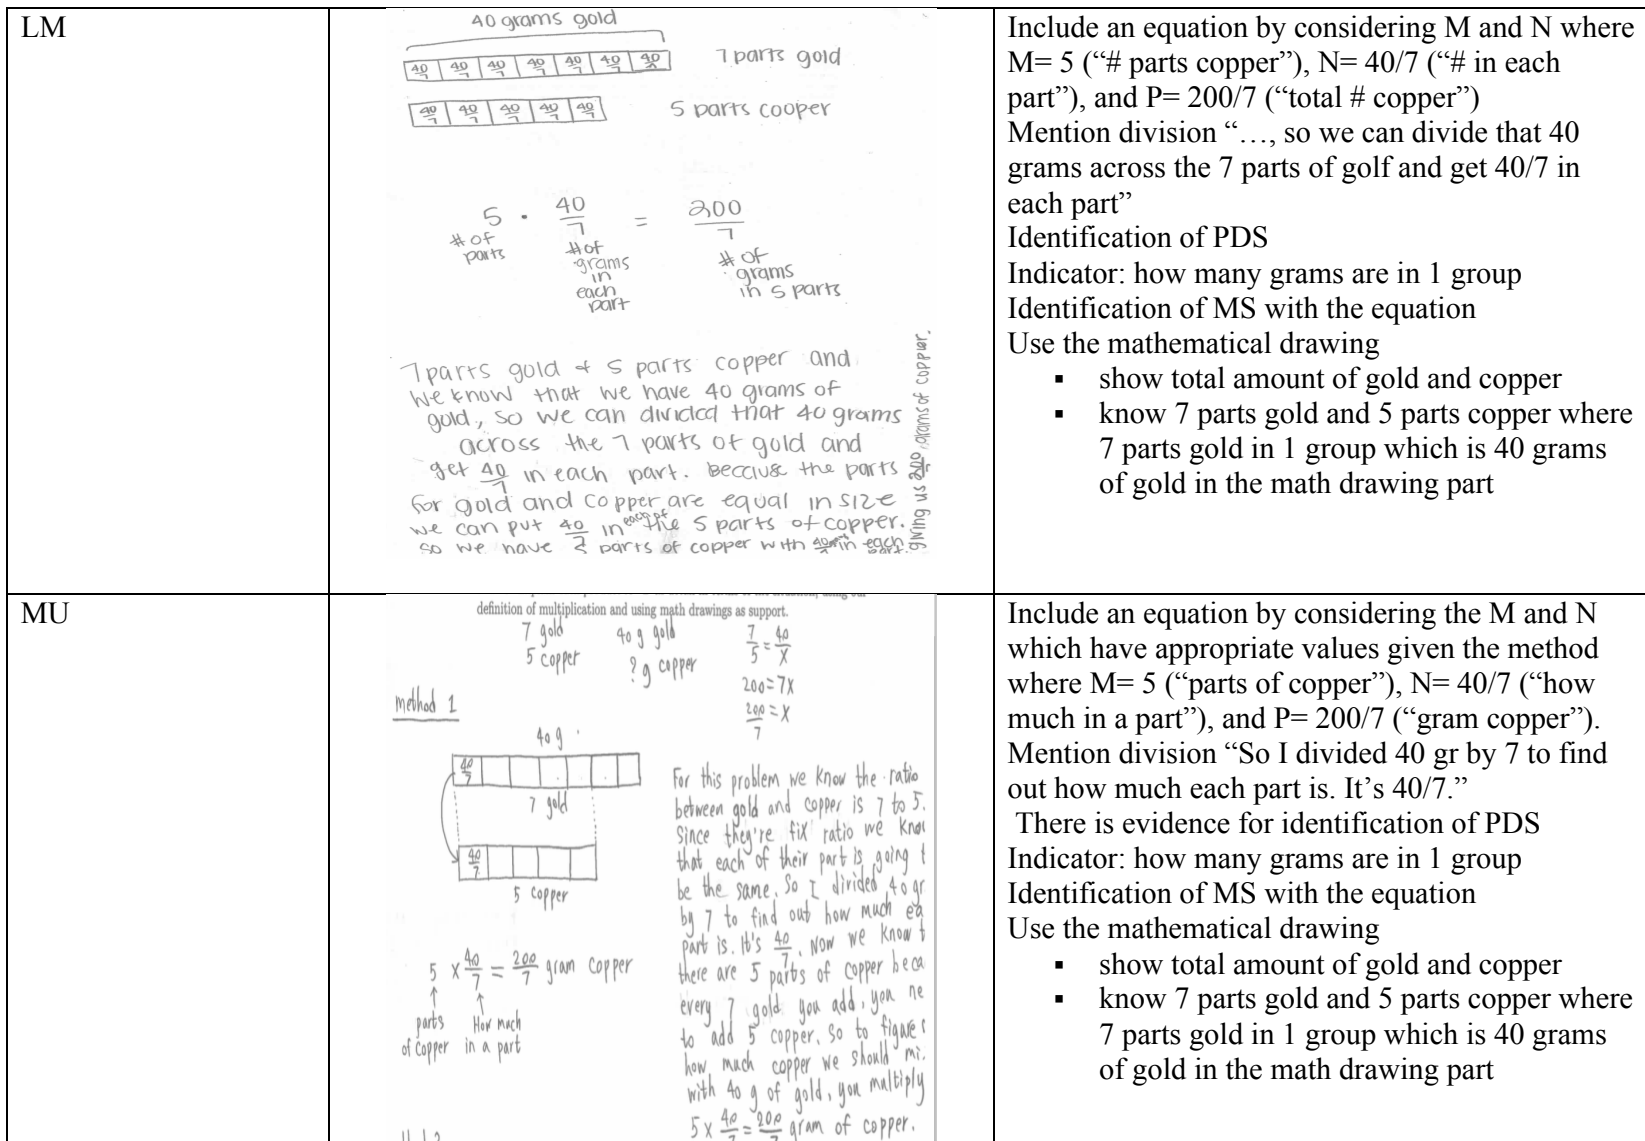 LM
40 grams gold
40/7 40/7 40/7 40/7 40/7 40/7 40/7 7 parts gold
40/7 40/7 40/7 40/7 40/7 5 parts cooper
5 · 40/7 = 200/7
# of parts
# of grams in each part
# of grams in 5 parts
7 parts gold & 5 parts copper and
we know that we have 40 grams of
gold, so we can divided that 40 grams
across the 7 parts of gold and
get 40/7 in each part. Because the parts
for gold and copper are equal in size
we can put 40/7 in each of the 5 parts of copper.
so we have 5 parts of copper with 40/7 in each part.
giving us 200/7 grams of copper.
Include an equation by considering M and N where
M= 5 (“# parts copper”), N= 40/7 (“# in each
part”), and P= 200/7 (“total # copper”)
Mention division “…, so we can divide that 40
grams across the 7 parts of golf and get 40/7 in
each part”
Identification of PDS
Indicator: how many grams are in 1 group
Identification of MS with the equation
Use the mathematical drawing
▪ show total amount of gold and copper
▪ know 7 parts gold and 5 parts copper where
7 parts gold in 1 group which is 40 grams
of gold in the math drawing part
MU
definition of multiplication and using math drawings as support.
7 gold
5 copper
40 g gold
? g copper
7/5 = 40/X
200 = 7X
200/7 = X
method 1
40 g
40/7
7 gold
40/7
5 copper
5 × 40/7 = 200/7 gram copper
parts of copper
How much in a part
For this problem we know the ratio
between gold and copper is 7 to 5.
Since they're fix ratio we know
that each of their part is going t
be the same. So I divided 40 gr
by 7 to find out how much ea
part is. It's 40/7. Now we know t
there are 5 parts of copper beca
every 7 gold you add, you ne
to add 5 copper. So to figure
how much copper we should mi
with 40 g of gold, you multiply
5 × 40/7 = 200/7 gram of copper.
Include an equation by considering the M and N
which have appropriate values given the method
where M= 5 (“parts of copper”), N= 40/7 (“how
much in a part”), and P= 200/7 (“gram copper”).
Mention division “So I divided 40 gr by 7 to find
out how much each part is. It’s 40/7.”
There is evidence for identification of PDS
Indicator: how many grams are in 1 group
Identification of MS with the equation
Use the mathematical drawing
▪ show total amount of gold and copper
▪ know 7 parts gold and 5 parts copper where
7 parts gold in 1 group which is 40 grams
of gold in the math drawing part